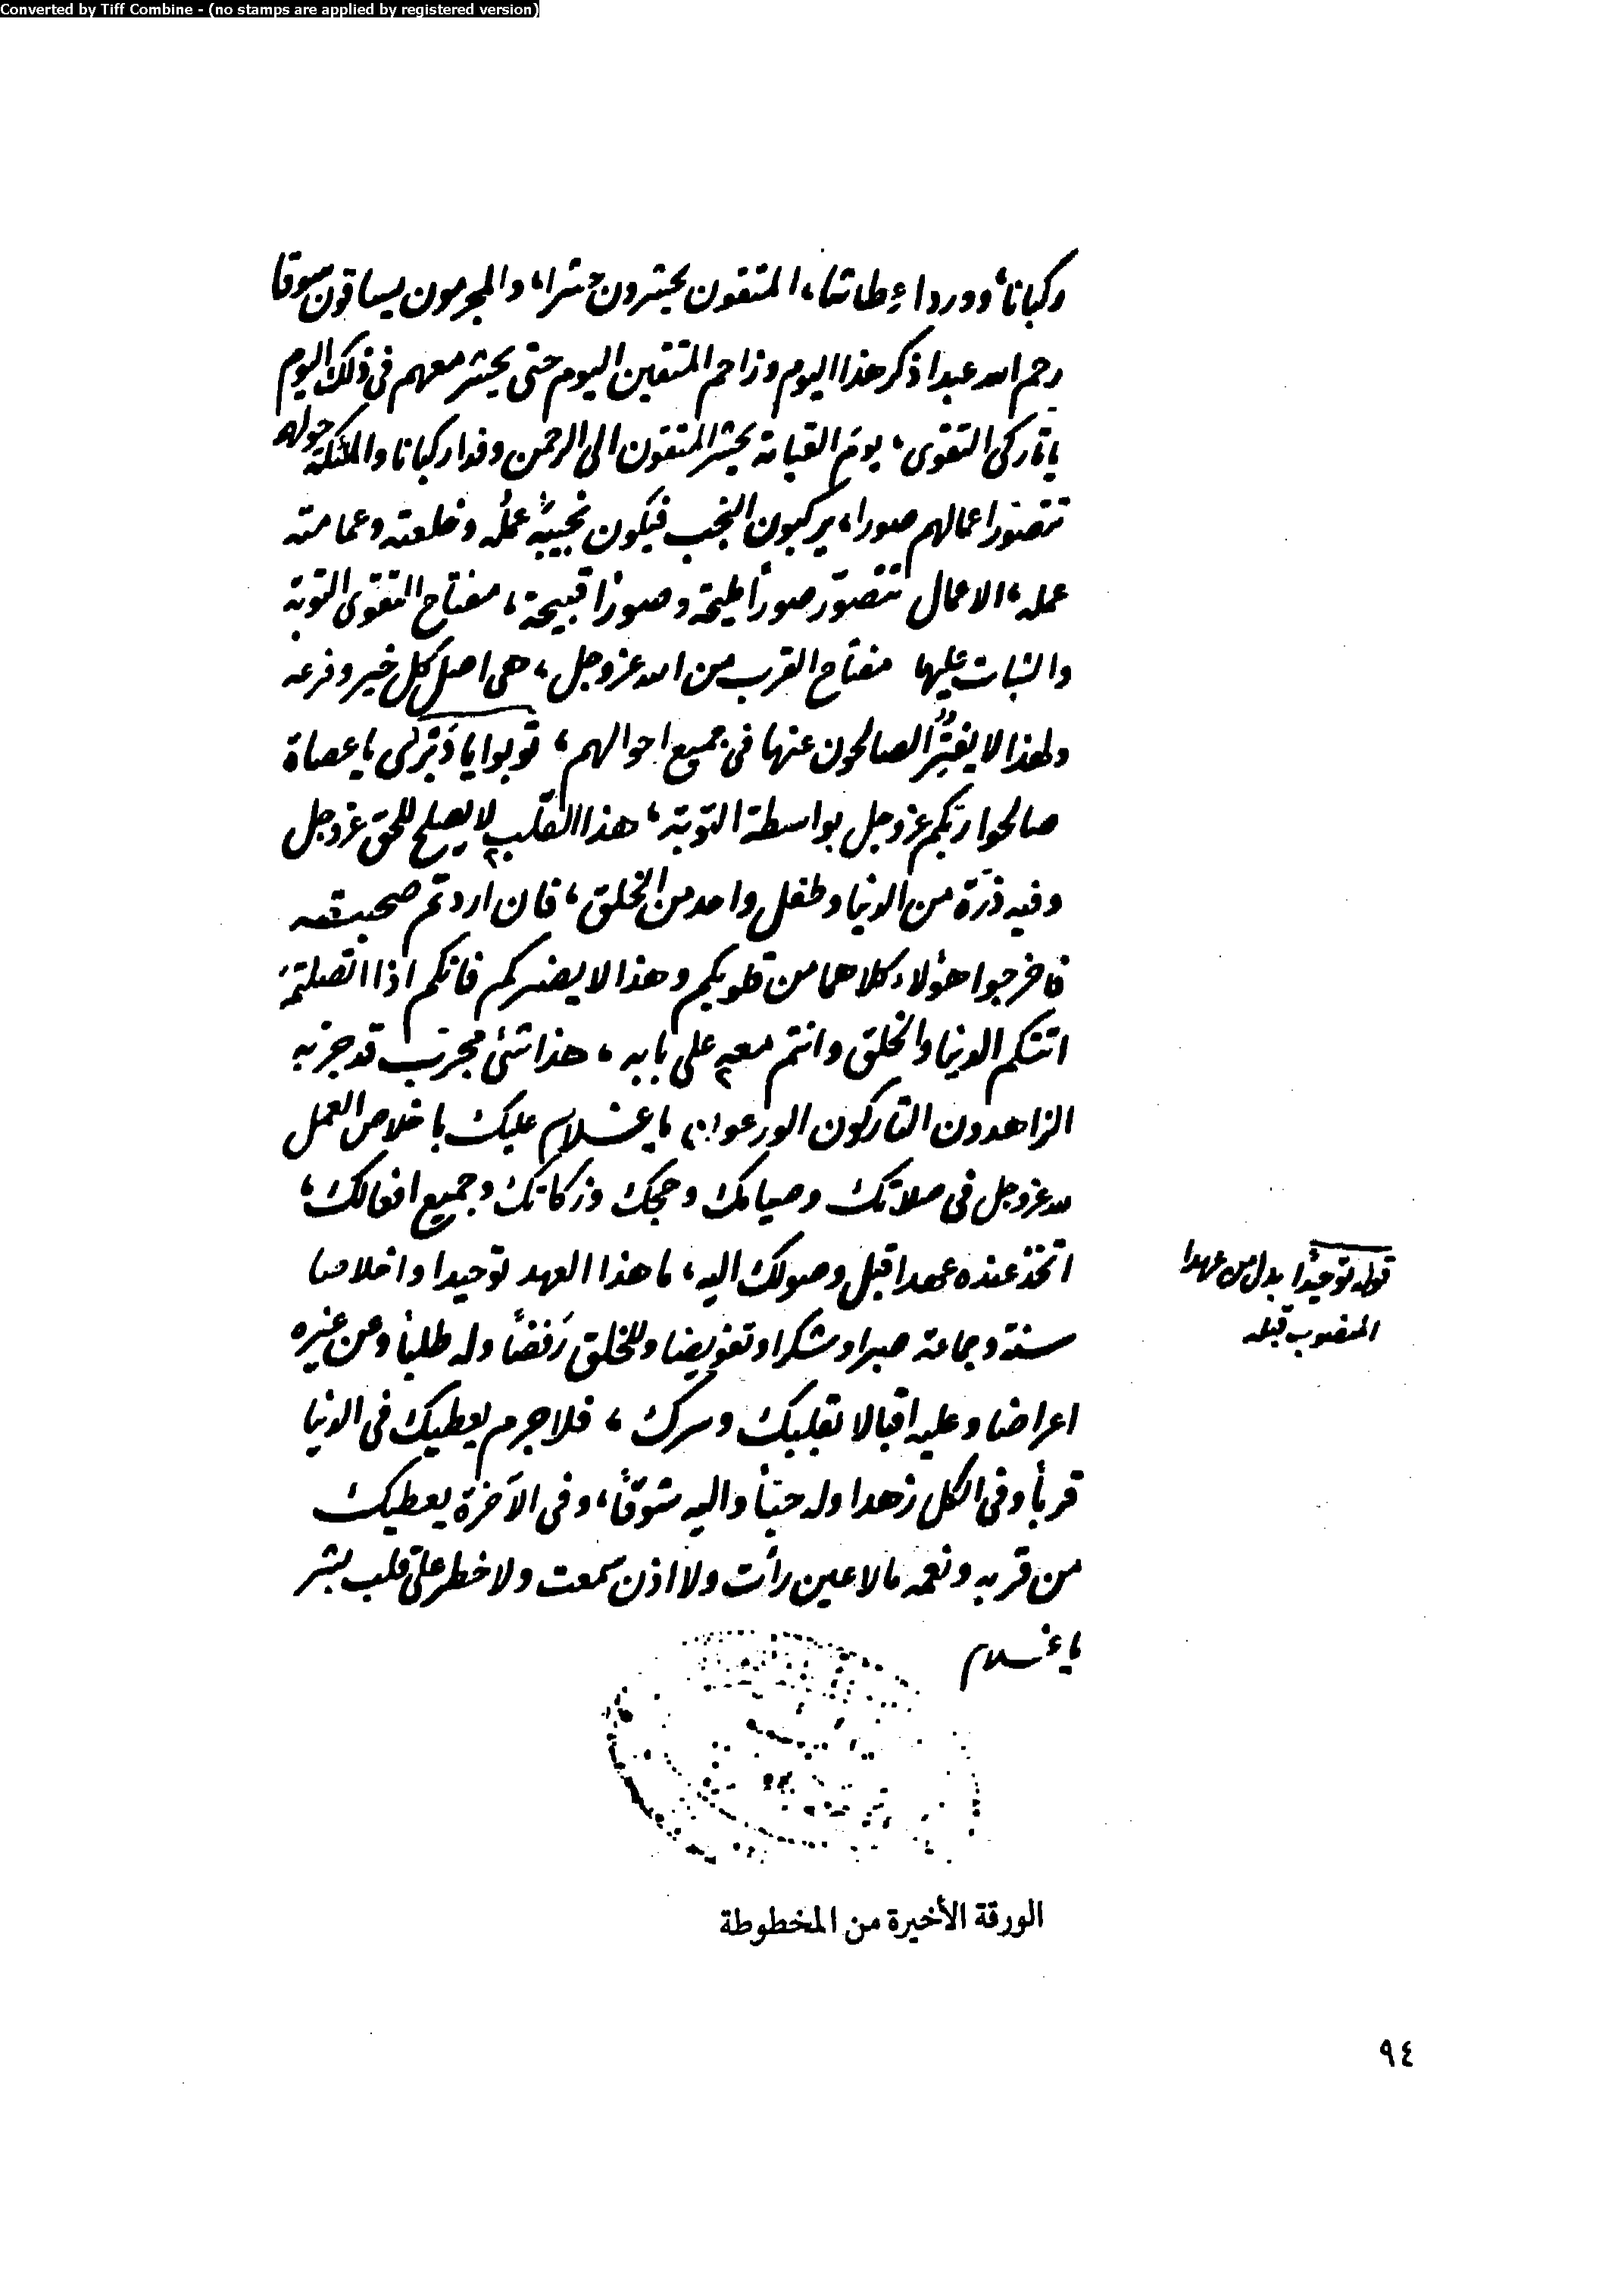 Converted by Tiff Combine - (no stamps are applied by registered version)
ركبانا، ووردا عطاشا، المتقون يحشرون حشرا، والمجرمون يساقون سوقا
رحم الله عبدا ذكر هذا اليوم وزاحم المتقين اليوم حتى يحشر معهم في ذلك اليوم
يا تاركي التقوى، يوم القيامة يحشر المتقون الى الرحمن وفدا ركبانا والملئكة حولهم
تتصور اعمالهم صورا، يركبون النجب فيكون نجيبه عمله وخلعته وعمامته
عمله، الاعمال تتصوّر صوراً مليحة وصوراً قبيحة، مفتاح التقوى التوبة
والثبات عليها مفتاح القرب من الله عز وجل، هى اصل كل خير وفرعه
ولهذا لا يفتر الصالحون عنها فى جميع احوالهم، توبوا يا دبرى يا عصاة
صالحوا ربكم عز وجل بواسطة التوبة، هذا القلب لا يصلح للحق عز وجل
وفيه ذرّة من الدنيا وطفل واحد من الخلق، فان اردتم صحبته
فاخرجوا هؤلاء كلاهما من قلوبكم وهذا لا يضركم فانكم اذا اتصلتم
اتتكم الدنيا والخلق وانتم معه على بابه، هذا شئ مجرّب قد جربه
الزاهدون التاركون الورعون يا غلام عليك باخلاص العمل
لله عز وجل فى صلاتك وصيامك وحجك وزكاتك وجميع افعالك،
اتخذ عنده عهدا قبل وصولك اليه، ما هذا العهد توحيدا واخلاصا
سنة وجماعة صبرا وشكرا وتفويضا وللخلق رَفضاً وله طلباً وعن غيره
اعراضا وعليه اقبالا بقلبك وسرك، فلا جرم يعطيك فى الدنيا
قرباً وفى الكل زهدا وله حباً واليه شوقاً، وفى الآخرة يعطيك
من قربه ونعمه ما لا عين رأت ولا اذن سمعت ولا خطر على قلب بشر
يا غلام
قوله توحيداً بدل من عهدا
المنصوب قبله
الورقة الأخيرة من المخطوطة
٩٤